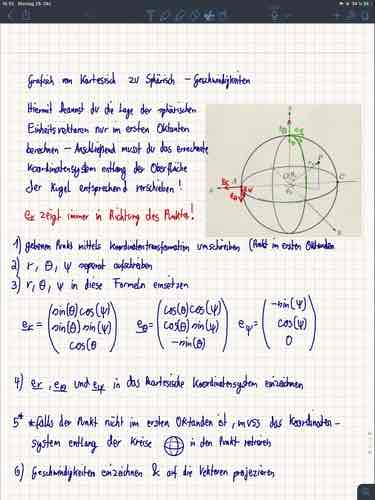 16:52 Montag 25. Okt.
Grafisch von Kartesisch zu Sphärisch - Geschwindigkeiten
Hiermit kannst du die Lage der sphärischen
Einheitsvektoren nur im ersten Oktanten
berechnen - Anschließend musst du das errechnete
Koordinatensystem entlang der Oberfläche
der Kugel entsprechend verschieben!
er zeigt immer in Richtung des Punktes!
1) gegebenen Punkt mittels Koordinatentransformation umschreiben (Punkt im ersten Oktanden
2) r, θ, ψ separat aufschreiben
3) r, θ, ψ in diese Formeln einsetzen
er = (sin(θ)cos(ψ) sin(θ)sin(ψ) cos(θ) eθ = (cos(θ)cos(ψ) cos(θ)sin(ψ) -sin(θ)) eψ = (-sin(ψ) cos(ψ) 0)
4) er, eθ und eψ in das Kartesische Koordinatensystem einzeichnen
5* *falls der Punkt nicht im ersten Oktanden ist, muss das Koordinaten-
system entlang der Kreise in den Punkt
6) Geschwindigkeiten einzeichnen & auf die Vektoren projezieren